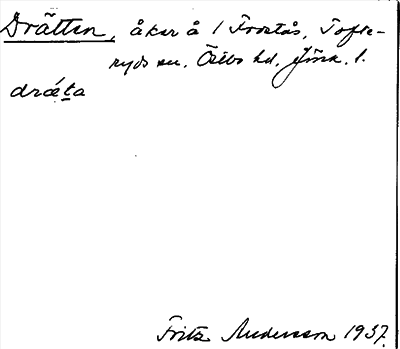 Drätten, åker å 1 Frostås, Tofte-
ryds sn. Östbo hd. Jönk. l.
dræta
Fritz Andersson 1937.